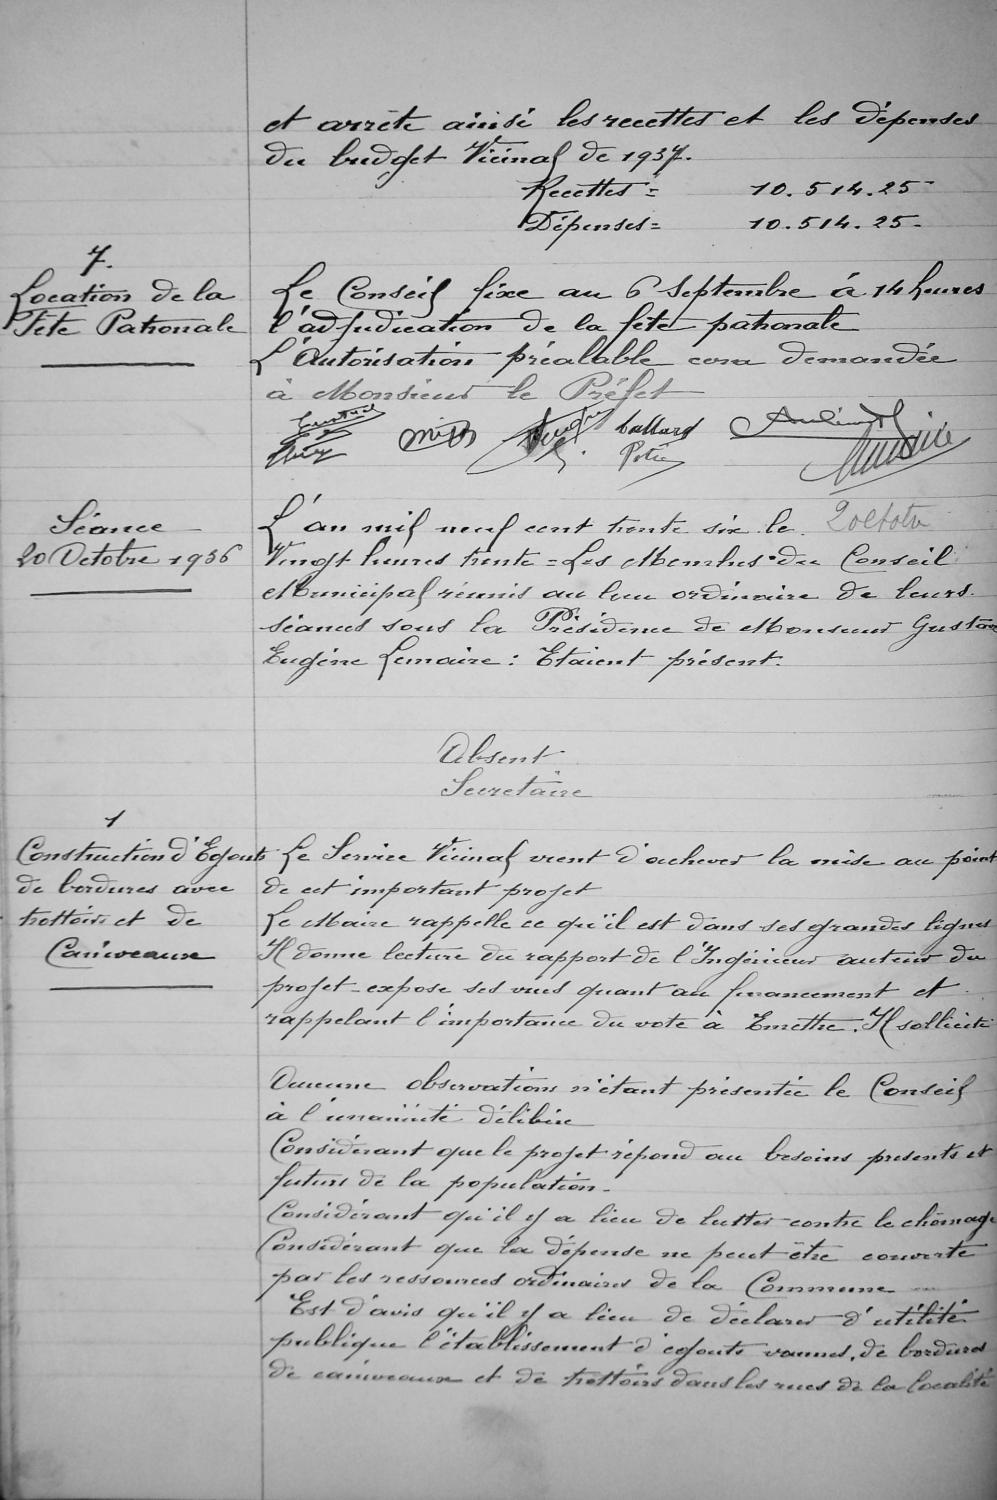 et arrête ainsi les recettes et les dépenses
du budget Vicinal de 1937.
Recettes = 10.514.25
Dépenses = 10.514.25
7.
Location de la
Fête Patronale
Le Conseil fixe au 6 Septembre à 14 heures
l'adjudication de la fête patronale
L'Autorisation préalable sera demandée
à Monsieur le Préfet
Séance
20 Octobre 1936
L'an mil neuf cent trente six le 20 Octobre
Vingt heures trente = Les Membres du Conseil
Municipal réunis au lieu ordinaire de leurs
séances sous la Présidence de Monsieur Gustave
Eugène Lemaire : Etaient présent.
Absent
Secretaire
1
Construction d'Egouts
de bordures avec
trottoirs et de
Caniveaux
Le Service Vicinal vient d'achever la mise au point
de cet important projet
Le Maire rappelle ce qu'il est dans ses grandes lignes
Il donne lecture du rapport de l'Ingénieur auteur du
projet - expose ses vues quant au financement et
rappelant l'importance du vote à Emettre. Il sollicite
Aucune observations n'étant présentée le Conseil
à l'unanimité délibère
Considérant que le projet répond au besoins presents et
futurs de la population -
Considérant qu'il y a lieu de lutter contre le chômage
Considérant que la dépense ne peut être couverte
par les ressources ordinaires de la Commune
Est d'avis qu'il y a lieu de déclarer d'utilité
publique l'établissement d'egouts vannes, de bordures
de caniveaux et de trottoirs dans les rues de la localité